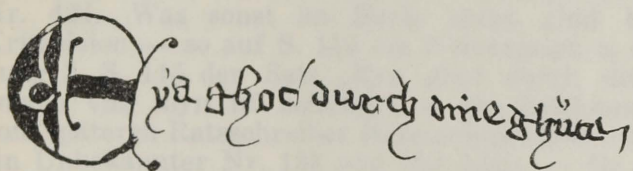 Eya ghot durch dine ghüte